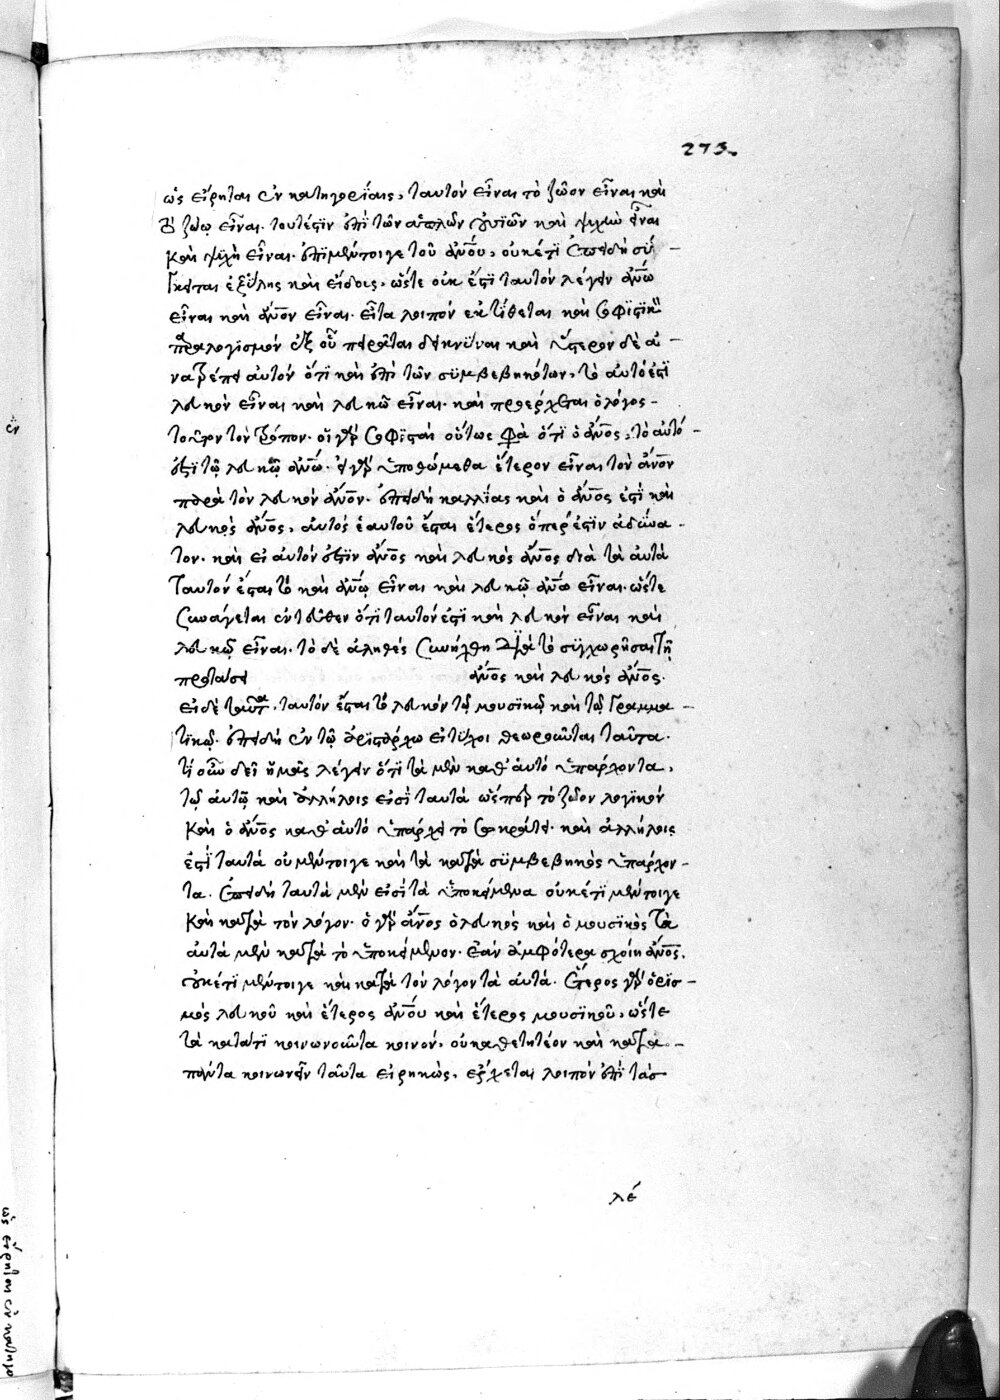 273.
ὡς εἴρηται ἐν κατηγορίαις, ταυτὸν εἶναι τὸ ζῶον εἶναι καὶ
εἶναι. τουτέστιν ἐπὶ τῶν ἁπλῶν οὐσιῶν καὶ ψυχὴν εἶναι
καὶ ψυχῇ εἶναι. ἐπὶ μέντοιγε τοῦ ἀνου, οὐκέτι ἐπειδὴ σύγ-
κειται ἐξ ὕλης καὶ εἴδους. ὥστε οὐκ ἔστι ταυτὸν λέγειν ἀνω
εἶναι καὶ ἀνον εἶναι. εἶτα λοιπὸν ἐκτίθεται καὶ σοφιστικὴ
παραλογισμὸν ἐξ οὗ πειρᾶται δεικνύναι καὶ ὕστερον δὲ ἀ-
νατρέπει αὐτὸν ὅτι καὶ ἐπὶ τῶν συμβεβηκότων, τὸ αὐτό ἐστι
λευκὸν εἶναι καὶ λευκῶ εἶναι. καὶ προέρχεται ὁ λόγος
τοῦτον τὸν τρόπον. οἱ γὰρ σοφισταὶ οὕτως φα ὅτι ὁ ἀνος, τὸ αὐτό
ἐστι τῷ λευκῷ ἀνω. εἰ γὰρ ὑποθώμεθα ἕτερον εἶναι τὸν ἀνον
παρὰ τὸν λευκὸν ἀνον. ἐπειδὴ καλλίας καὶ ὁ ἀνος ἐστὶ καὶ
λευκὸς ἀνος, αὐτὸς ἑαυτοῦ ἔσται ἕτερος ὅπερ ἐστὶν ἀδύνα-
τον. καὶ εἰ αὐτόν ἐστιν ἀνος καὶ λευκὸς ἀνος διὰ τὰ αὐτὰ
ταυτὸν ἔσται τὸ καὶ ἀνω εἶναι καὶ λευκῷ ἀνω εἶναι. ὥστε
συνάγεται ἐντεῦθεν ὅτι ταυτόν ἐστι καὶ λευκὸν εἶναι καὶ
λευκῷ εἶναι. τὸ δὲ ἀληθὲς συνήχθη διὰ τὸ συγχωρῆσαι τῇ
προτάσει ἀνος καὶ λευκὸς ἀνος.
εἰ δὲ ταυτὸν ἔσται τὸ λευκὸν τῷ μουσικῷ καὶ τῷ γραμμα-
τικῷ. ἐπειδὴ ἐν τῷ ἀριστάρχω εἰ τύχοι θεωροῦνται ταῦτα.
τί οὖν δεῖ ἡμᾶς λέγειν ὅτι τὰ μὲν καθ' αὑτὸ ὑπάρχοντα,
τῷ αὐτῷ καὶ ἀλλήλοις εἰσὶ ταυτὰ ὥσπερ τὸ ζῶον λογικὸν
καὶ ὁ ἀνος καθ' αὑτὸ ὑπάρχει τὸ σωκράτει. καὶ ἀλλήλοις
ἐστὶ ταυτὰ οὐ μέντοιγε καὶ τὰ κατὰ συμβεβηκὸς ὑπάρχον-
τα. ἐπειδὴ ταυτὰ μὲν εἰσὶ τὰ ὑποκείμενα οὐκέτι μέντοιγε
καὶ κατὰ τὸν λόγον. ὁ γὰρ ἀνος ὁ λευκὸς καὶ ὁ μουσικὸς τὰ
αὐτὰ μὲν κατὰ τὸ ὑποκείμενον. ἐὰν ἀμφότερα σχοίη ἀνος.
οὐκέτι μέντοιγε καὶ κατὰ τὸν λόγον τὰ αὐτά. ἕτερος γὰρ ὁρισ-
μὸς λευκοῦ καὶ ἕτερος ἀνου καὶ ἕτερος μουσικοῦ, ὥστε
τὰ κατά τι κοινωνοῦντα κοινὸν, οὐκ αἰτητέον καὶ κατὰ
πάντα κοινωνεῖν ταῦτα εἰρηκὼς, ἔρχεται λοιπὸν ἐπὶ τὰσ
λέ
ὡς εἴρηται ἐν κατηγο